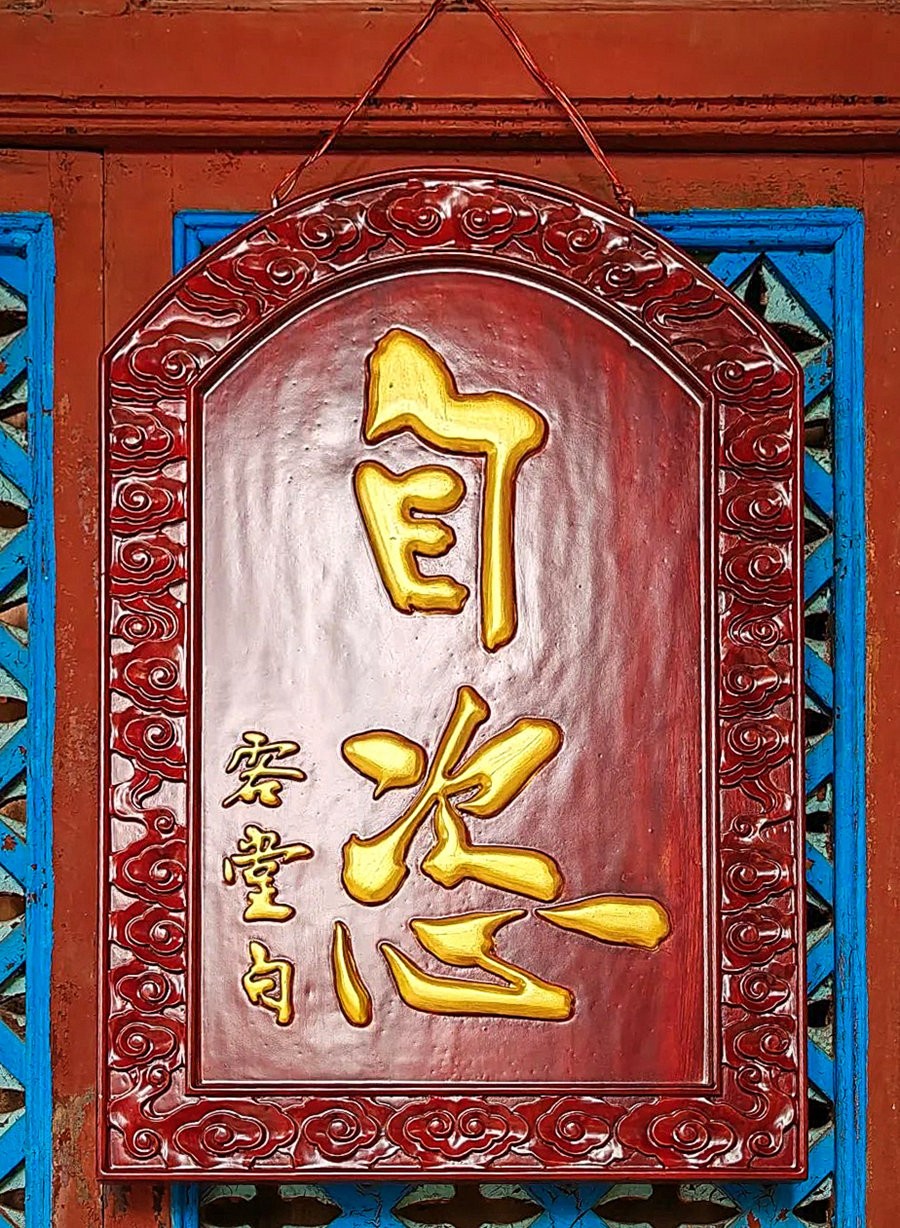 自恣
客堂白